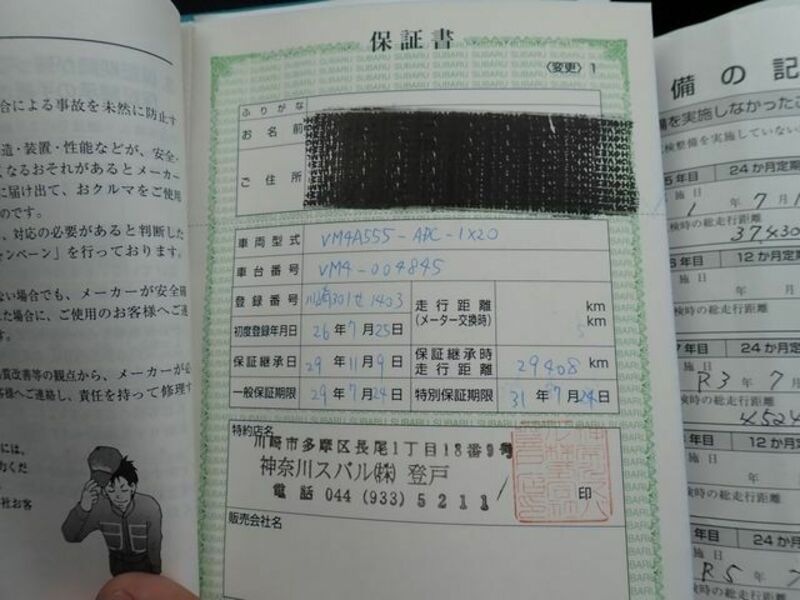 合による事故を未然に防止す
造・装置・性能などが、安全・
くなるおそれがあるとメーカー
に届け出て、おクルマをご使用
のです。
、対応の必要があると判断した
ンペーン」を行っております。
ない場合でも、メーカーが安全確
た場合に、ご使用のお客様へご連
す。
品質改善等の観点から、メーカーが必
客様へご連絡し、責任を持って修理す
には、
社お客
保証書
〈変更〉1
ふりがな
お名前
ご住所
車両型式 VM4A555-APC-1X20
車台番号 VM4-004845
登録番号 川崎301せ1403 走行距離(メーター交換時) km km
初度登録年月日 26年7月25日
保証継承日 29年11月9日 保証継承時走行距離 29408 km
一般保証期限 29年7月24日 特別保証期限 31年7月24日
特約店名
川崎市多摩区長尾1丁目18番9号
神奈川スバル㈱ 登戸
電話 044 (933) 5211
印
販売会社名
備の記
備を実施しなかったこ
検整備を実施していない
5年目 24か月定期
施日
1年7月1
検時の総走行距離
37430
6年目 12か月定期
施日
年 月
検時の総走行距離
7年目 24か月定
施日
R3年7月
検時の総走行距離
4524
年目 12か月定
施日
年
検時の総走行距離
年目 24か月
施日
R5年7
検時の総走行距離